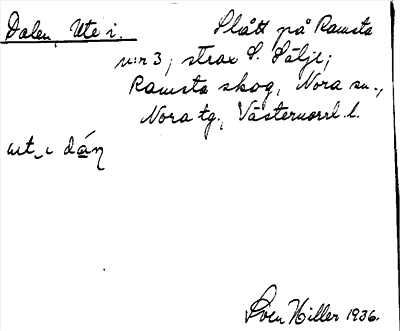 Dalen, Ute i. Slått på Ramsta
n:r 3; strax S. Sälje;
Ramsta skog, Nora sn.,
Nora tg., Västernorrl. l.
ut_ ι dáη
Sven Hiller 1936.